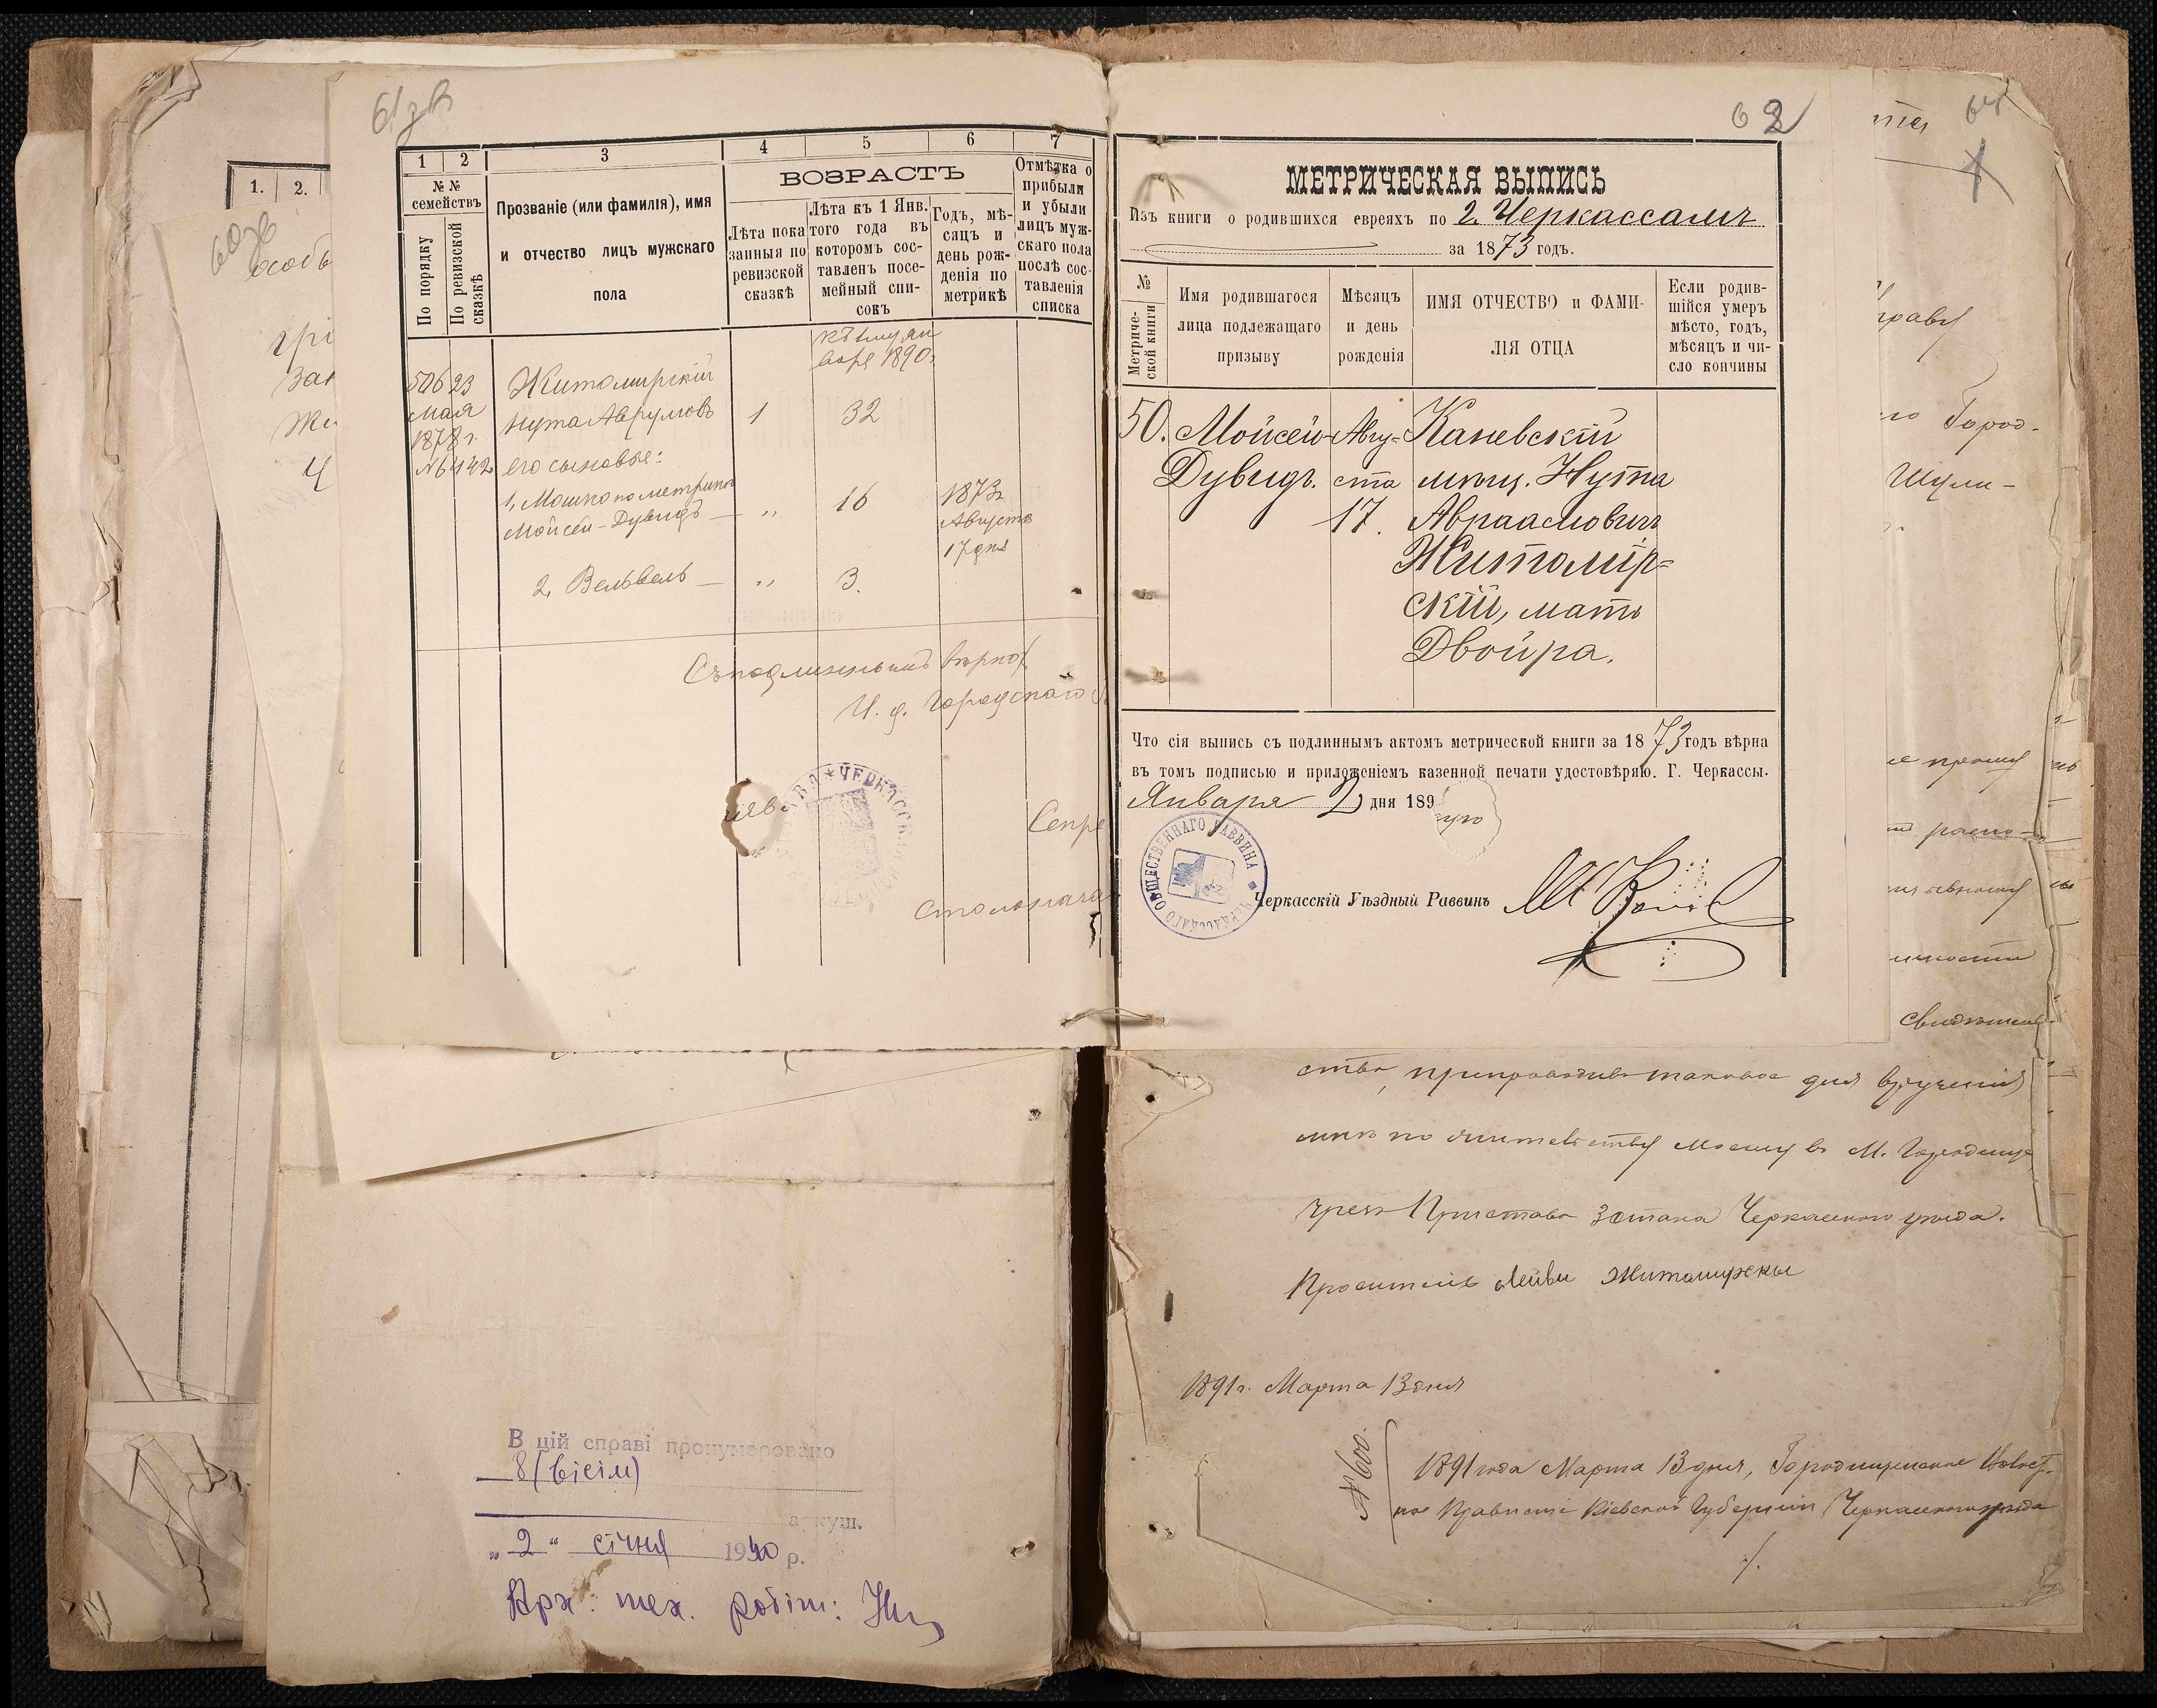 61зв
1
2
3
4
5
6
7
№ №
семействъ
По порядку
По ревизской
сказкѣ
Прозваніе (или фамилія), имя
и отчество лицъ мужскаго
пола
ВОЗРАСТЪ
Лѣта пока
занныя по
ревизской
сказкѣ
Лѣта къ 1 Янв.
того года въ
которомъ сос-
тавленъ посе-
мейный спи-
сокъ
Годъ, мѣ-
сяцъ и
день рож-
денія по
метрикѣ
Отмѣтка о
прибыли
и убыли
лицъ муж-
скаго пола
послѣ сос-
тавленія
списка
1890г.
506 23
Мая
1878 г.
№6442
Житомирскій
Нута Аврумовъ
1
32
его сыновья:
1, Мошко по метрикѣ
Мойсей-Дувидъ — „ 16
1873г
Августа
17 дня
2, Вельвель — „ 3.
Съ подлиннымъ вѣрно:
И. д. Городскаго
Секре
Столонача
62
МЕТРИЧЕСКАЯ ВЫПИСЬ
Изъ книги о родившихся евреяхъ по г. Черкассамъ
за 1873 годъ.
№
Метриче-
ской книги
Имя родившагося
лица подлежащаго
призыву
Мѣсяцъ
и день
рожденія
ИМЯ ОТЧЕСТВО и ФАМИ-
ЛІЯ ОТЦА
Если родив-
шійся умеръ
мѣсто, годъ,
мѣсяцъ и чи-
сло кончины
50. Мойсей- Авгу= Каневскій
Дувидъ. ста мѣщ. Нута
17. Авраамовичъ
Житомір=
скій, мать
Двойра.
Что сія выпись съ подлиннымъ актомъ метрической книги за 1873 годъ вѣрна
въ томъ подписью и приложеніемъ казенной печати удостовѣряю. Г. Черкассы.
Января 2 дня 189
ЧЕРКАССКАГО ОБЩЕСТВЕННАГО РАВВИНА
Черкасскій Уѣздный Раввинъ
64
Город-
Шули-
свидѣтель-
ство, препроводивъ таковое для врученія
мнѣ по жительству моему въ М. Городище
чрезъ Пристава 3 стана Черкасскаго уѣзда.
Проситель Лейви Житомирскы
1891 г. Марта 13 дня
№600.
1891 года Марта 13 дня, Городищенское Волост-
ное Правленіе Кіевской Губерніи, Черкасскаго уѣзда
1.
2.
60зв
В цій справі пронумеровано
8 (вісім)
аркуш.
„2“ січня 1940 р.
Арх: тех. робіт: